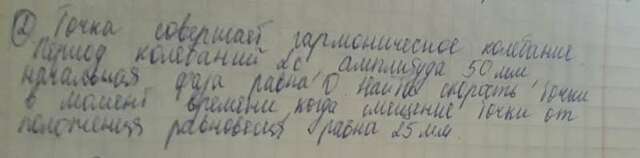 ② Точка совершает гармоническое колебание.
Период колебаний 2с амплитуда 50 мм
начальная фаза равна 0. Найти скорость точки
в момент времени когда смещение точки от
положения равновесия равна 25 мм.